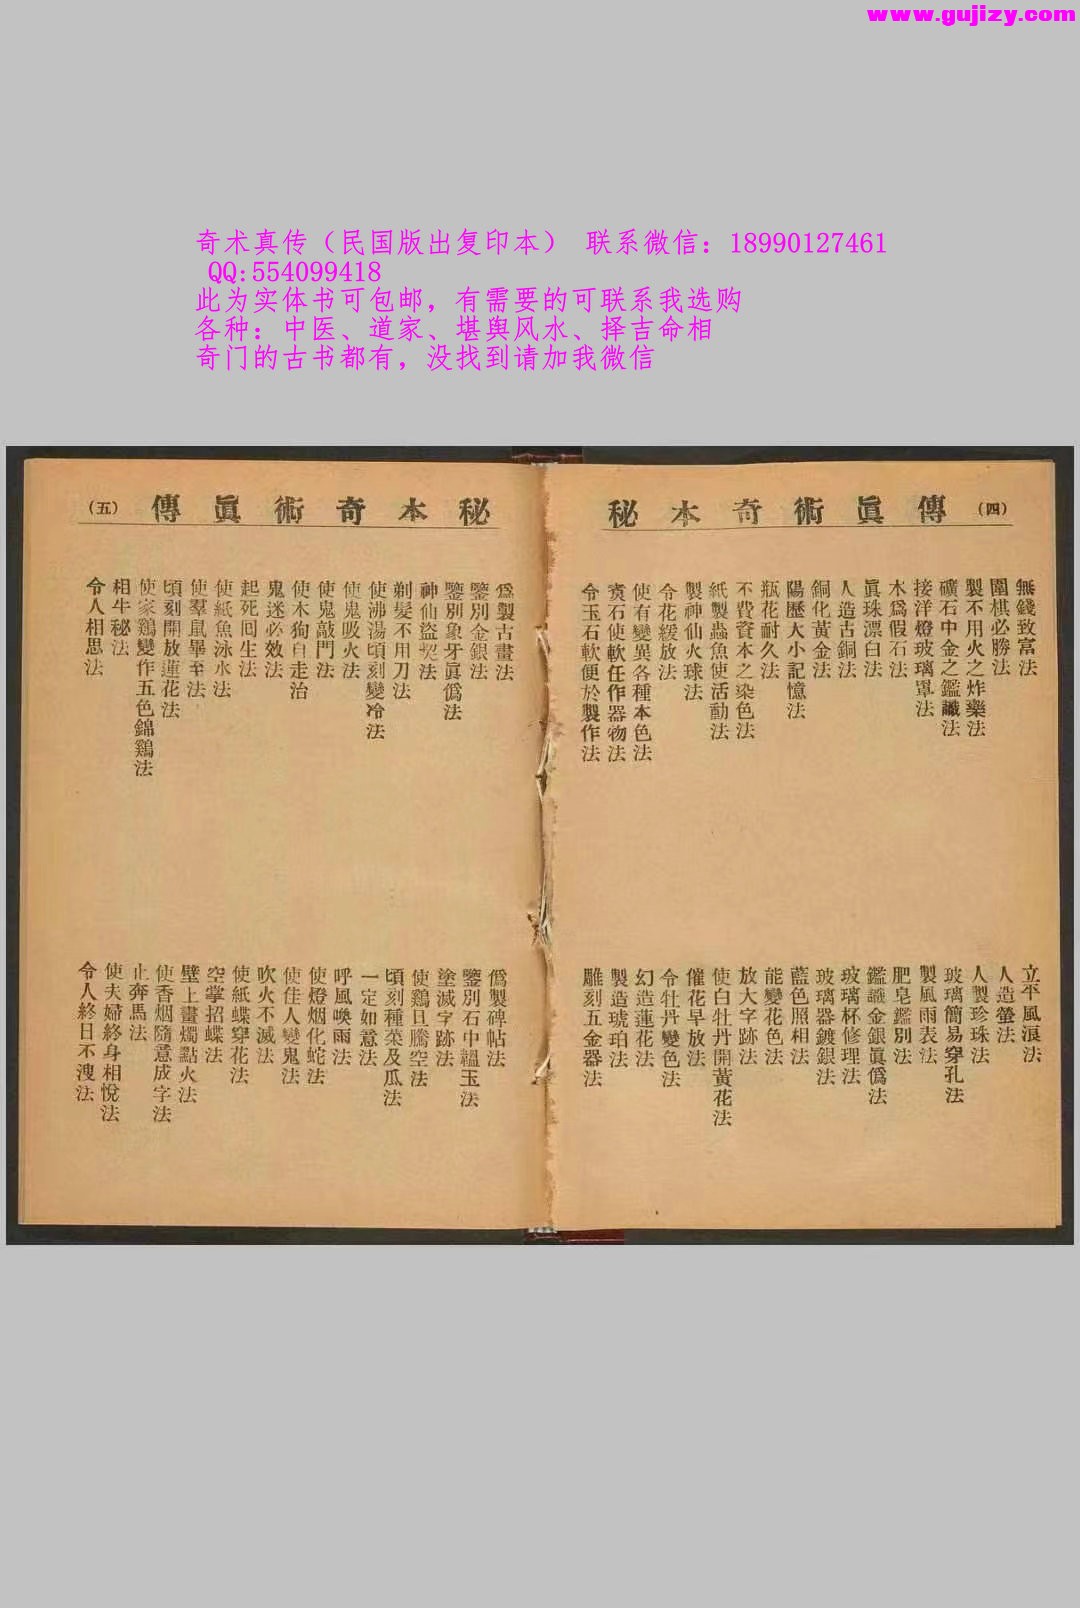 www.gujizy.com
奇术真传（民国版出复印本） 联系微信：18990127461
QQ:554099418
此为实体书可包邮，有需要的可联系我选购
各种：中医、道家、堪舆风水、择吉命相
奇门的古书都有，没找到请加我微信
傳眞術奇本秘
（四）
無錢致富法
圍棋必勝法
製不用火之炸藥法
礦石中金之鑑識法
接洋燈玻璃罩法
木爲假石法
眞珠漂白法
人造古銅法
銅化黃金法
陽歷大小記憶法
瓶花耐久法
不費資本之染色法
紙製蟲魚使活動法
製神仙火球法
令花緩放法
使有變異各種本色法
賓石使軟任作器物法
令玉石軟便於製作法
立平風浪法
人造螢法
人製珍珠法
玻璃簡易穿孔法
製風雨表法
肥皂鑑別法
鑑識金銀眞僞法
玻璃杯修理法
玻璃器鍍銀法
藍色照相法
能變花色法
放大字跡法
使白牡丹開黃花法
催花早放法
令牡丹變色法
幻造蓮花法
製造琥珀法
雕刻五金器法
秘本奇術眞傳
（五）
僞製古畫法
鑒別金銀法
鑒別象牙眞僞法
神仙盜契法
剃髮不用刀法
使沸湯頃刻變冷法
使鬼吸火法
使鬼敲門法
使木狗自走治
鬼迷必效法
起死回生法
使紙魚泳水法
使羣鼠畢至法
頃刻開放蓮花法
使家鷄變作五色錦鷄法
相牛秘法
令人相思法
僞製碑帖法
鑒別石中韞玉法
塗滅字跡法
使鷄旦騰空法
頃刻種菜及瓜法
一定如意法
呼風喚雨法
使燈烟化蛇法
使佳人變鬼法
吹火不滅法
使紙蝶穿花法
空掌招蝶法
壁上畫燭點火法
使香烟隨意成字法
止奔馬法
使夫婦終身相悅法
令人終日不溲法